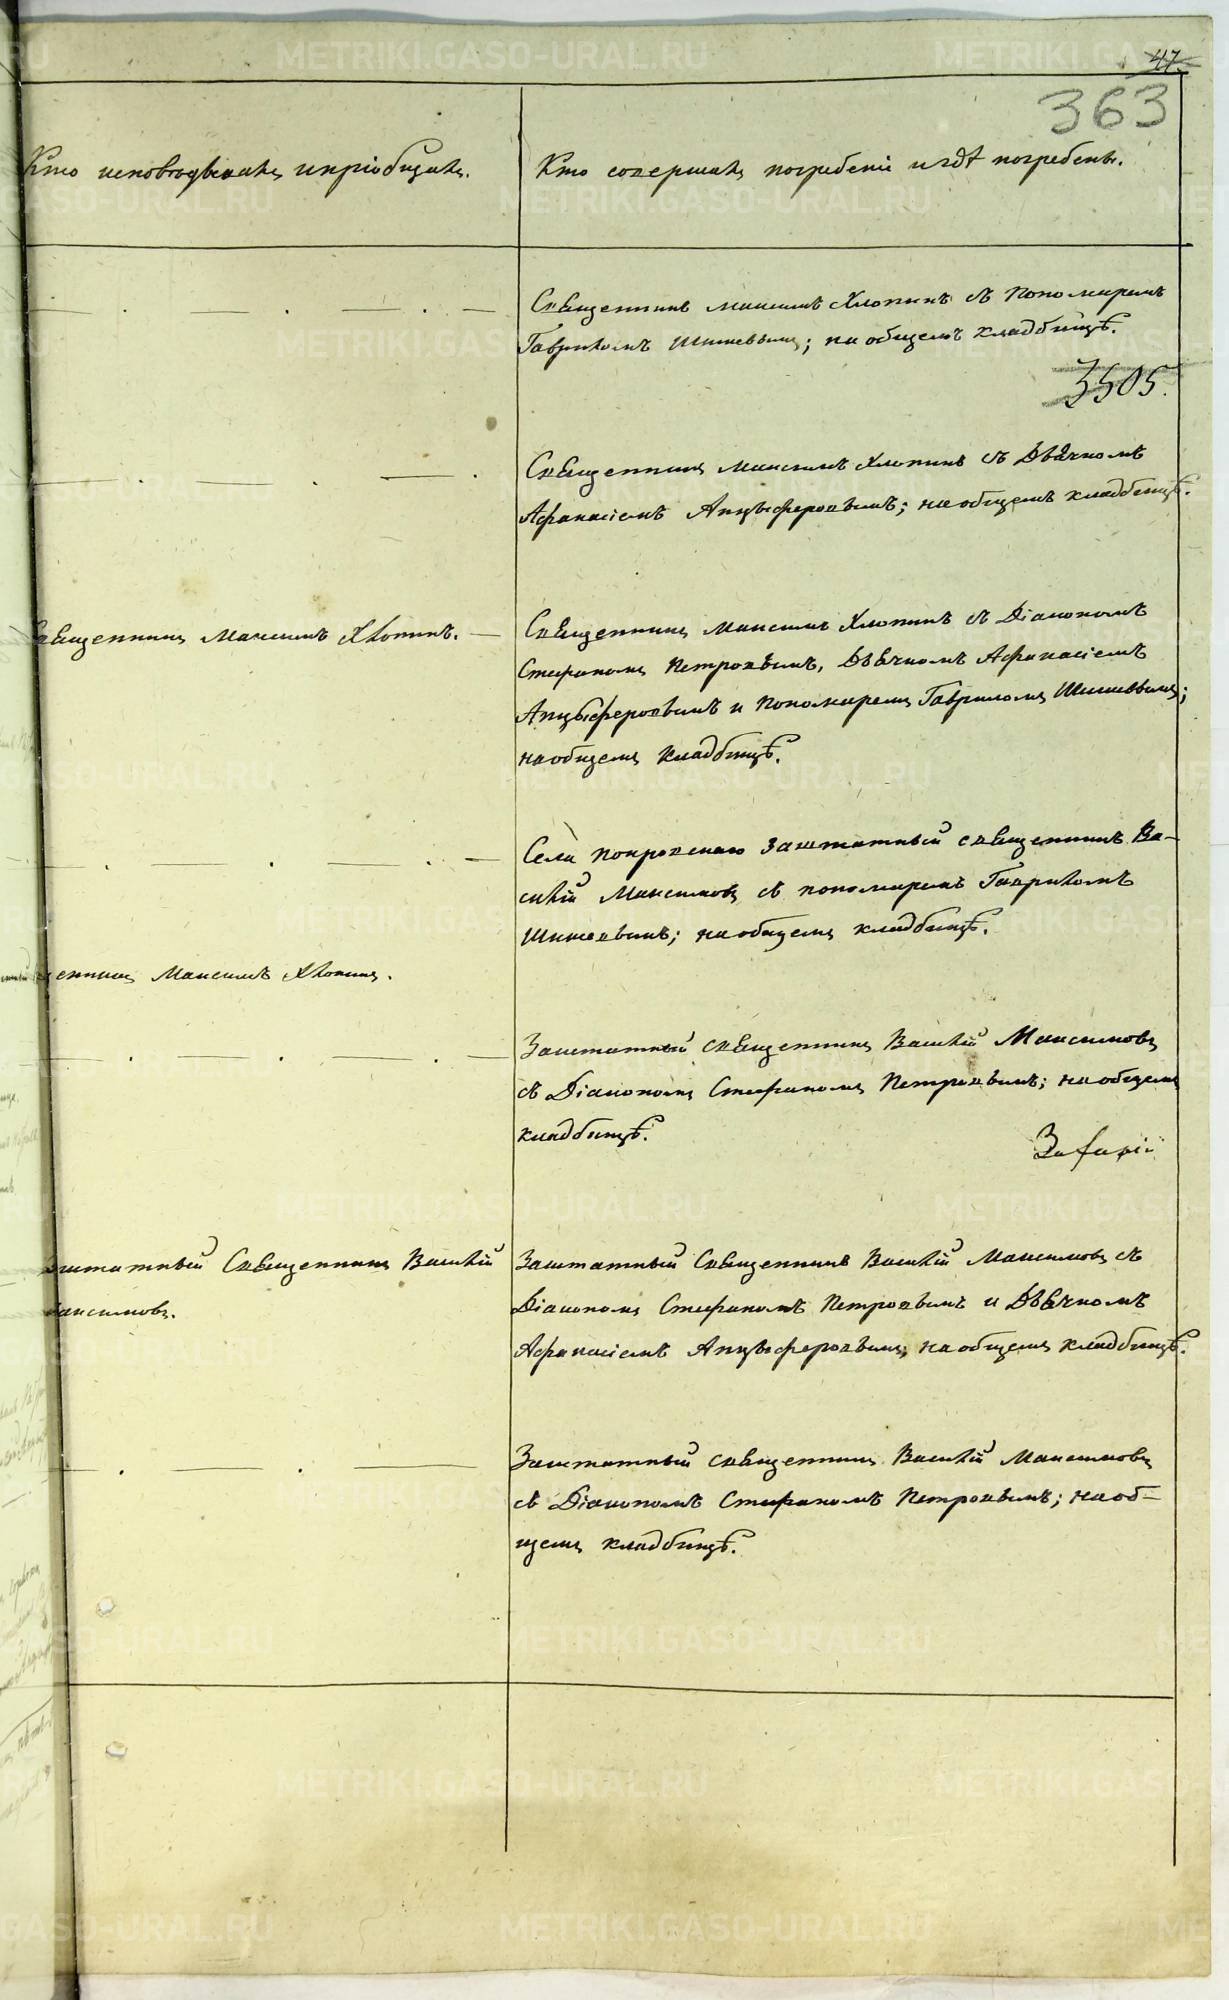 47.
363
Кто исповѣдывалъ и пріобщалъ.
Кто совершалъ погребеніе и гдѣ погребены.
Священникъ Максимъ Хлопинъ съ Пономаремъ
Гавриломъ Шишевымъ; на общемъ кладбищѣ.
3505.
Священникъ Максимъ Хлопинъ съ Дьячкомъ
Афанасіемъ Анцыферовымъ; на общемъ кладбищѣ.
Священникъ Максимъ Хлопинъ.
Священникъ Максимъ Хлопинъ съ Діакономъ
Стефаномъ Петровымъ, Дьячкомъ Афанасіемъ
Анцыферовымъ и Пономаремъ Гавриломъ Шишевымъ;
на общемъ кладбищѣ.
Села Покровскаго заштатный священникъ Ва-
силій Максимовъ съ пономаремъ Гавриломъ
Шишевымъ; на общемъ кладбищѣ.
щенникъ Максимъ Хлопинъ.
Заштатный священникъ Василій Максимовъ
съ Діакономъ Стефаномъ Петровымъ; на общемъ
кладбищѣ.
Заштатный Священникъ Василій
Максимовъ.
Заштатный Священникъ Василій Максимовъ съ
Діакономъ Стефаномъ Петровымъ и Дьячкомъ
Афанасіемъ Анцыферовымъ; на общемъ кладбищѣ.
Заштатный священникъ Василій Максимовъ
съ Діакономъ Стефаномъ Петровымъ; на об-
щемъ кладбищѣ.
METRIKI.GASO-URAL.RU